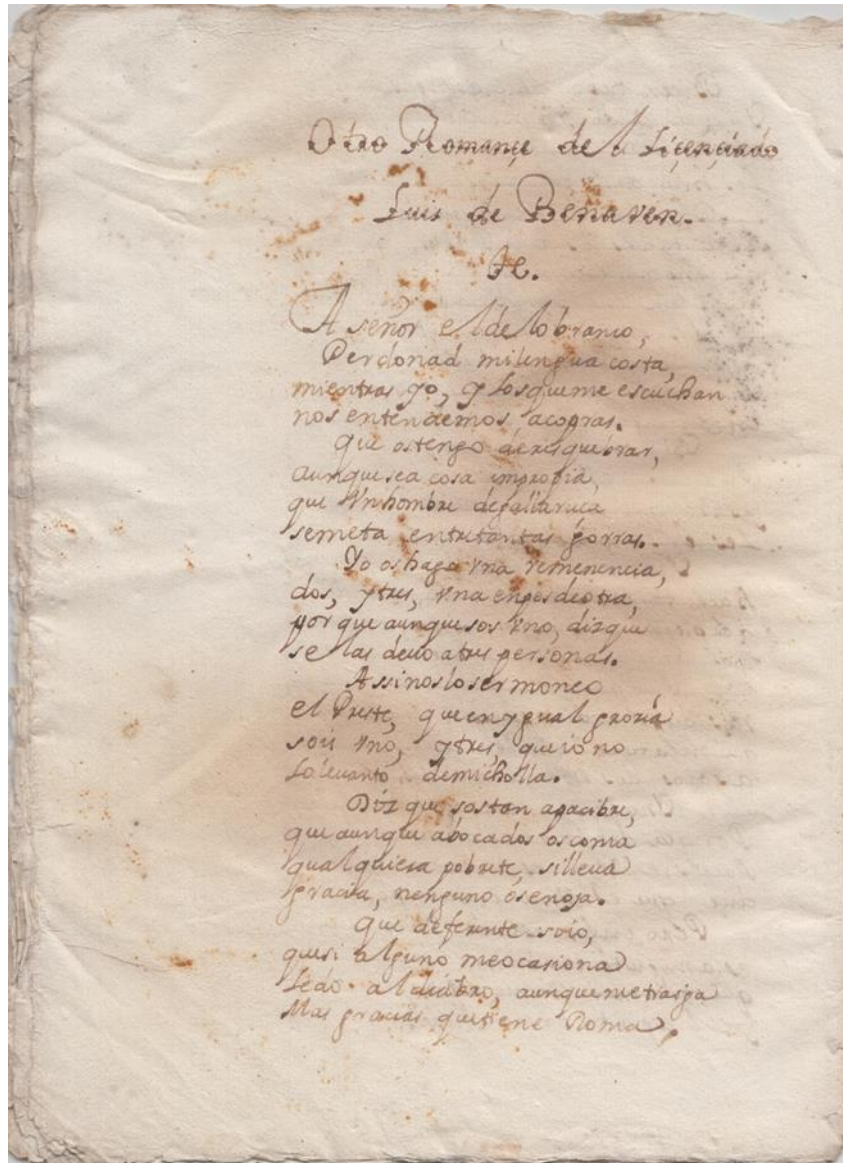 Otro Romançe del Liçençiado
Luis de Benaven-
te.
A señor el de lo branco,
Perdonad mi lengua tosca,
mientras yo, y los que me escuchan
nos entendemos a copras.
Que os tengo de resquebrar,
aunque sea cosa impropia,
que Vn hombre de gallaruca
se meta entre tantas gorras.
Yo os hago vna remenencia,
dos, y tres, vna en pos de otra,
por que aunque sos Vno, diz que
se las deuo a tres personas.
Assi nos lo sermoneo
el Preste, que en ygual groria
sois Vno, y tres, que io no
lo leuanto de mi cholla.
Diz que sos tan apacibre,
que aunque a bocados os coma
qualquiera pobrete, si lleua
gracia, nenguno os enoja.
Que deferente soio,
que si alguno me ocasiona
le do al diabro, aunque me traiga
Mas gracias que tiene Roma.